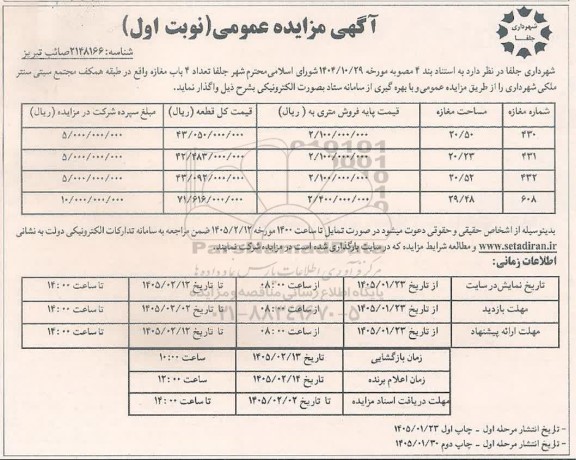 شهرداری
جلفا
آگهی مزایده عمومی(نوبت اول)
شناسه:۲۱۴۸۱۶۶صائب تبریز
شهرداری جلفا در نظر دارد به استناد بند ۴ مصوبه مورخه ۱۴۰۴/۱۰/۲۹ شورای اسلامی محترم شهر جلفا تعداد ۴ باب مغازه واقع در طبقه همکف مجتمع سیتی سنتر
ملکی شهرداری را از طریق مزایده عمومی و با بهره گیری از سامانه ستاد بصورت الکترونیکی بشرح ذیل واگذار نماید.
شماره مغازه | مساحت مغازه | قیمت پایه فروش متری به ( ریال) | قیمت کل قطعه (ریال) | مبلغ سپرده شرکت در مزایده (ریال)
۴۳۰ | ۲۰/۵۰ | ۲/۱۰۰/۰۰۰/۰۰۰ | ۴۳/۰۵۰/۰۰۰/۰۰۰ | ۵/۰۰۰/۰۰۰/۰۰۰
۴۳۱ | ۲۰/۲۳ | ۲/۱۰۰/۰۰۰/۰۰۰ | ۴۲/۴۸۳/۰۰۰/۰۰۰ | ۵/۰۰۰/۰۰۰/۰۰۰
۴۳۲ | ۲۰/۵۲ | ۲/۱۰۰/۰۰۰/۰۰۰ | ۴۳/۰۹۲/۰۰۰/۰۰۰ | ۵/۰۰۰/۰۰۰/۰۰۰
۶۰۸ | ۲۹/۲۸ | ۲/۴۰۰/۰۰۰/۰۰۰ | ۷۱/۶۱۶/۰۰۰/۰۰۰ | ۱۰/۰۰۰/۰۰۰/۰۰۰
بدینوسیله از اشخاص حقیقی و حقوقی دعوت میشود در صورت تمایل تا ساعت ۱۴۰۰ مورخه ۱۴۰۵/۲/۱۲ ضمن مراجعه به سامانه تدارکات الکترونیکی دولت به نشانی
www.setadiran.ir و مطالعه شرایط مزایده که در سایت بارگذاری شده است در مزایده شرکت نمایند.
اطلاعات زمانی:
تاریخ نمایش در سایت | از تاریخ ۱۴۰۵/۰۱/۲۳ | از ساعت ۰۸:۰۰ | تا تاریخ ۱۴۰۵/۰۲/۱۲ | تا ساعت ۱۴:۰۰
مهلت بازدید | از تاریخ ۱۴۰۵/۰۱/۲۳ | از ساعت ۰۸:۰۰ | تا تاریخ ۱۴۰۵/۰۲/۱۲ | تا ساعت ۱۴:۰۰
مهلت ارائه پیشنهاد | از تاریخ ۱۴۰۵/۰۱/۲۳ | از ساعت ۰۸:۰۰ | تا تاریخ ۱۴۰۵/۰۲/۱۲ | تا ساعت ۱۴:۰۰
زمان بازگشایی | تاریخ ۱۴۰۵/۰۲/۱۳ | ساعت ۱۰:۰۰
زمان اعلام برنده | تاریخ ۱۴۰۵/۰۲/۱۴ | ساعت ۱۲:۰۰
مهلت دریافت اسناد مزایده | تا تاریخ ۱۴۰۵/۰۲/۰۲ | تا ساعت ۱۴:۰۰
- تاریخ انتشار مرحله اول - چاپ اول ۱۴۰۵/۰۱/۲۳
- تاریخ انتشار مرحله اول - چاپ دوم ۱۴۰۵/۰۱/۳۰
پایگاه اطلاع رسانی مناقصه و مزایده
۰۲۱-۸۸۳۴۹۶۷۰-۵